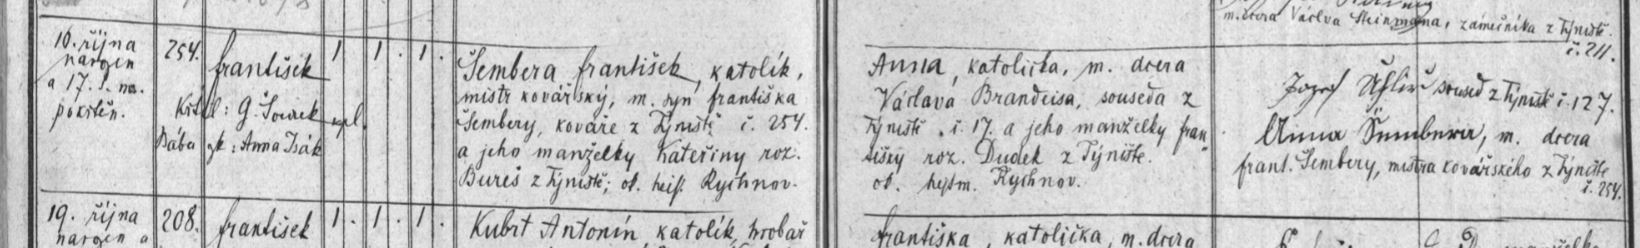 m. dcera Václva Steinmana, zámečníka z Týniště.
č. 211.
16. října
narozen
a 17. t. m.
pokřtěn.
254.
František
Křtil: G. Souček
Báb a zk: Anna Isák
1 1. 1.
Šembera František, katolík,
mistr kovářský, m. syn Františka
Šembery, kováře z Týniště č. 254.
a jeho manželky Kateřiny roz.
Bureš z Týniště; ob. hejt. Rychnov.
Anna, katolička, m. dcera
Václava Brandeisa, souseda z
Týniště č. 17. a jeho manželky Fran
tišky roz. Dudek z Týniště.
ob. hejtm. Rychnov.
Josef soused z Týniště č. 127.
Anna Šembera, m. dcera
Frant. Šembery, mistra kovářského z Týniště
č. 254.
19. října
narozen a
208.
František
1. 1. 1.
Kubrt Antonín katolík hrobař
Františka, katolička, m. dcera